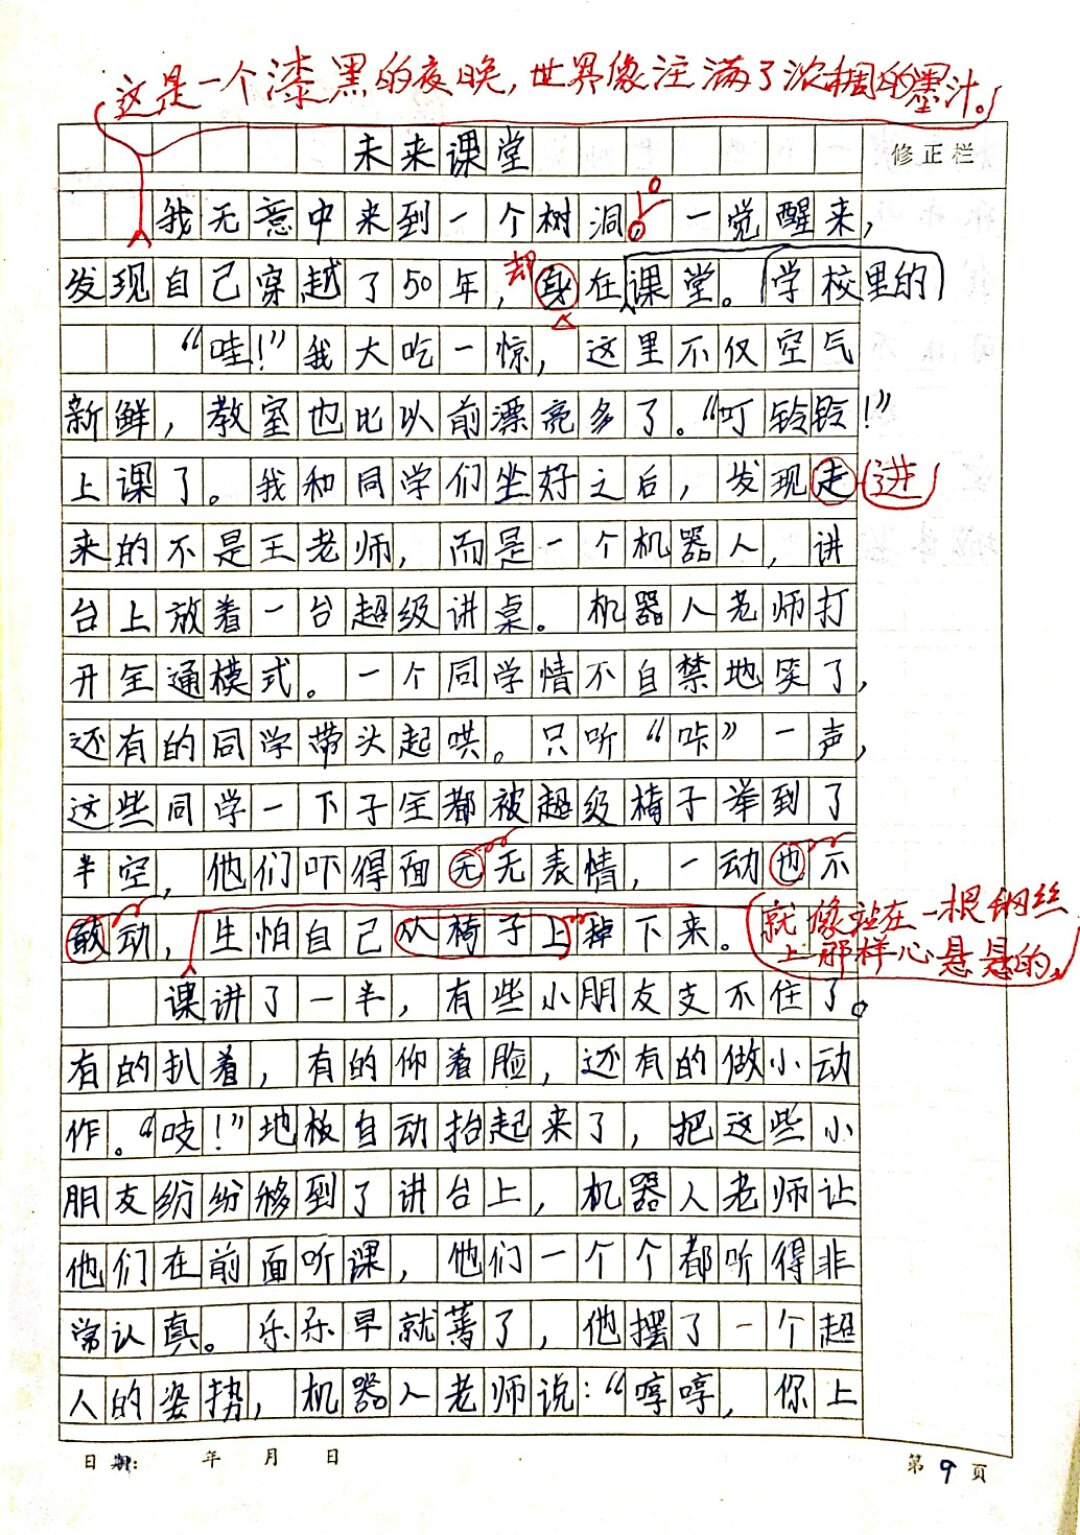 这是一个漆黑的夜晚，世界像注满了浓稠的墨汁。
未来课堂
修正栏
我无意中来到一个树洞，一觉醒来，
发现自己穿越了50年，却身在课堂。学校里的
“哇！”我大吃一惊，这里不仅空气
新鲜，教室也比以前漂亮多了。“叮铃铃！”
上课了。我和同学们坐好之后，发现走进
来的不是王老师，而是一个机器人，讲
台上放着一台超级讲桌。机器人老师打
开全通模式。一个同学情不自禁地笑了，
还有的同学带头起哄。只听“咔”一声，
这些同学一下子全都被超级椅子举到了
半空，他们吓得面无无表情，一动也不
敢动，生怕自己从椅子上掉下来。
就像站在一根钢丝
上那样心悬悬的。
课讲了一半，有些小朋友支不住了。
有的扒着，有的仰着脸，还有的做小动
作。“吱！”地板自动抬起来了，把这些小
朋友纷纷移到了讲台上，机器人老师让
他们在前面听课，他们一个个都听得非
常认真。乐乐早就蒙了，他摆了一个超
人的姿势，机器人老师说：“哼哼，你上
日期： 年 月 日
第9页